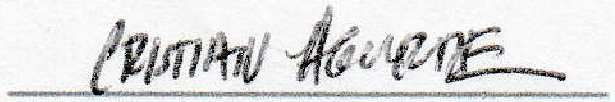 CRISTIAN AGUIRRE